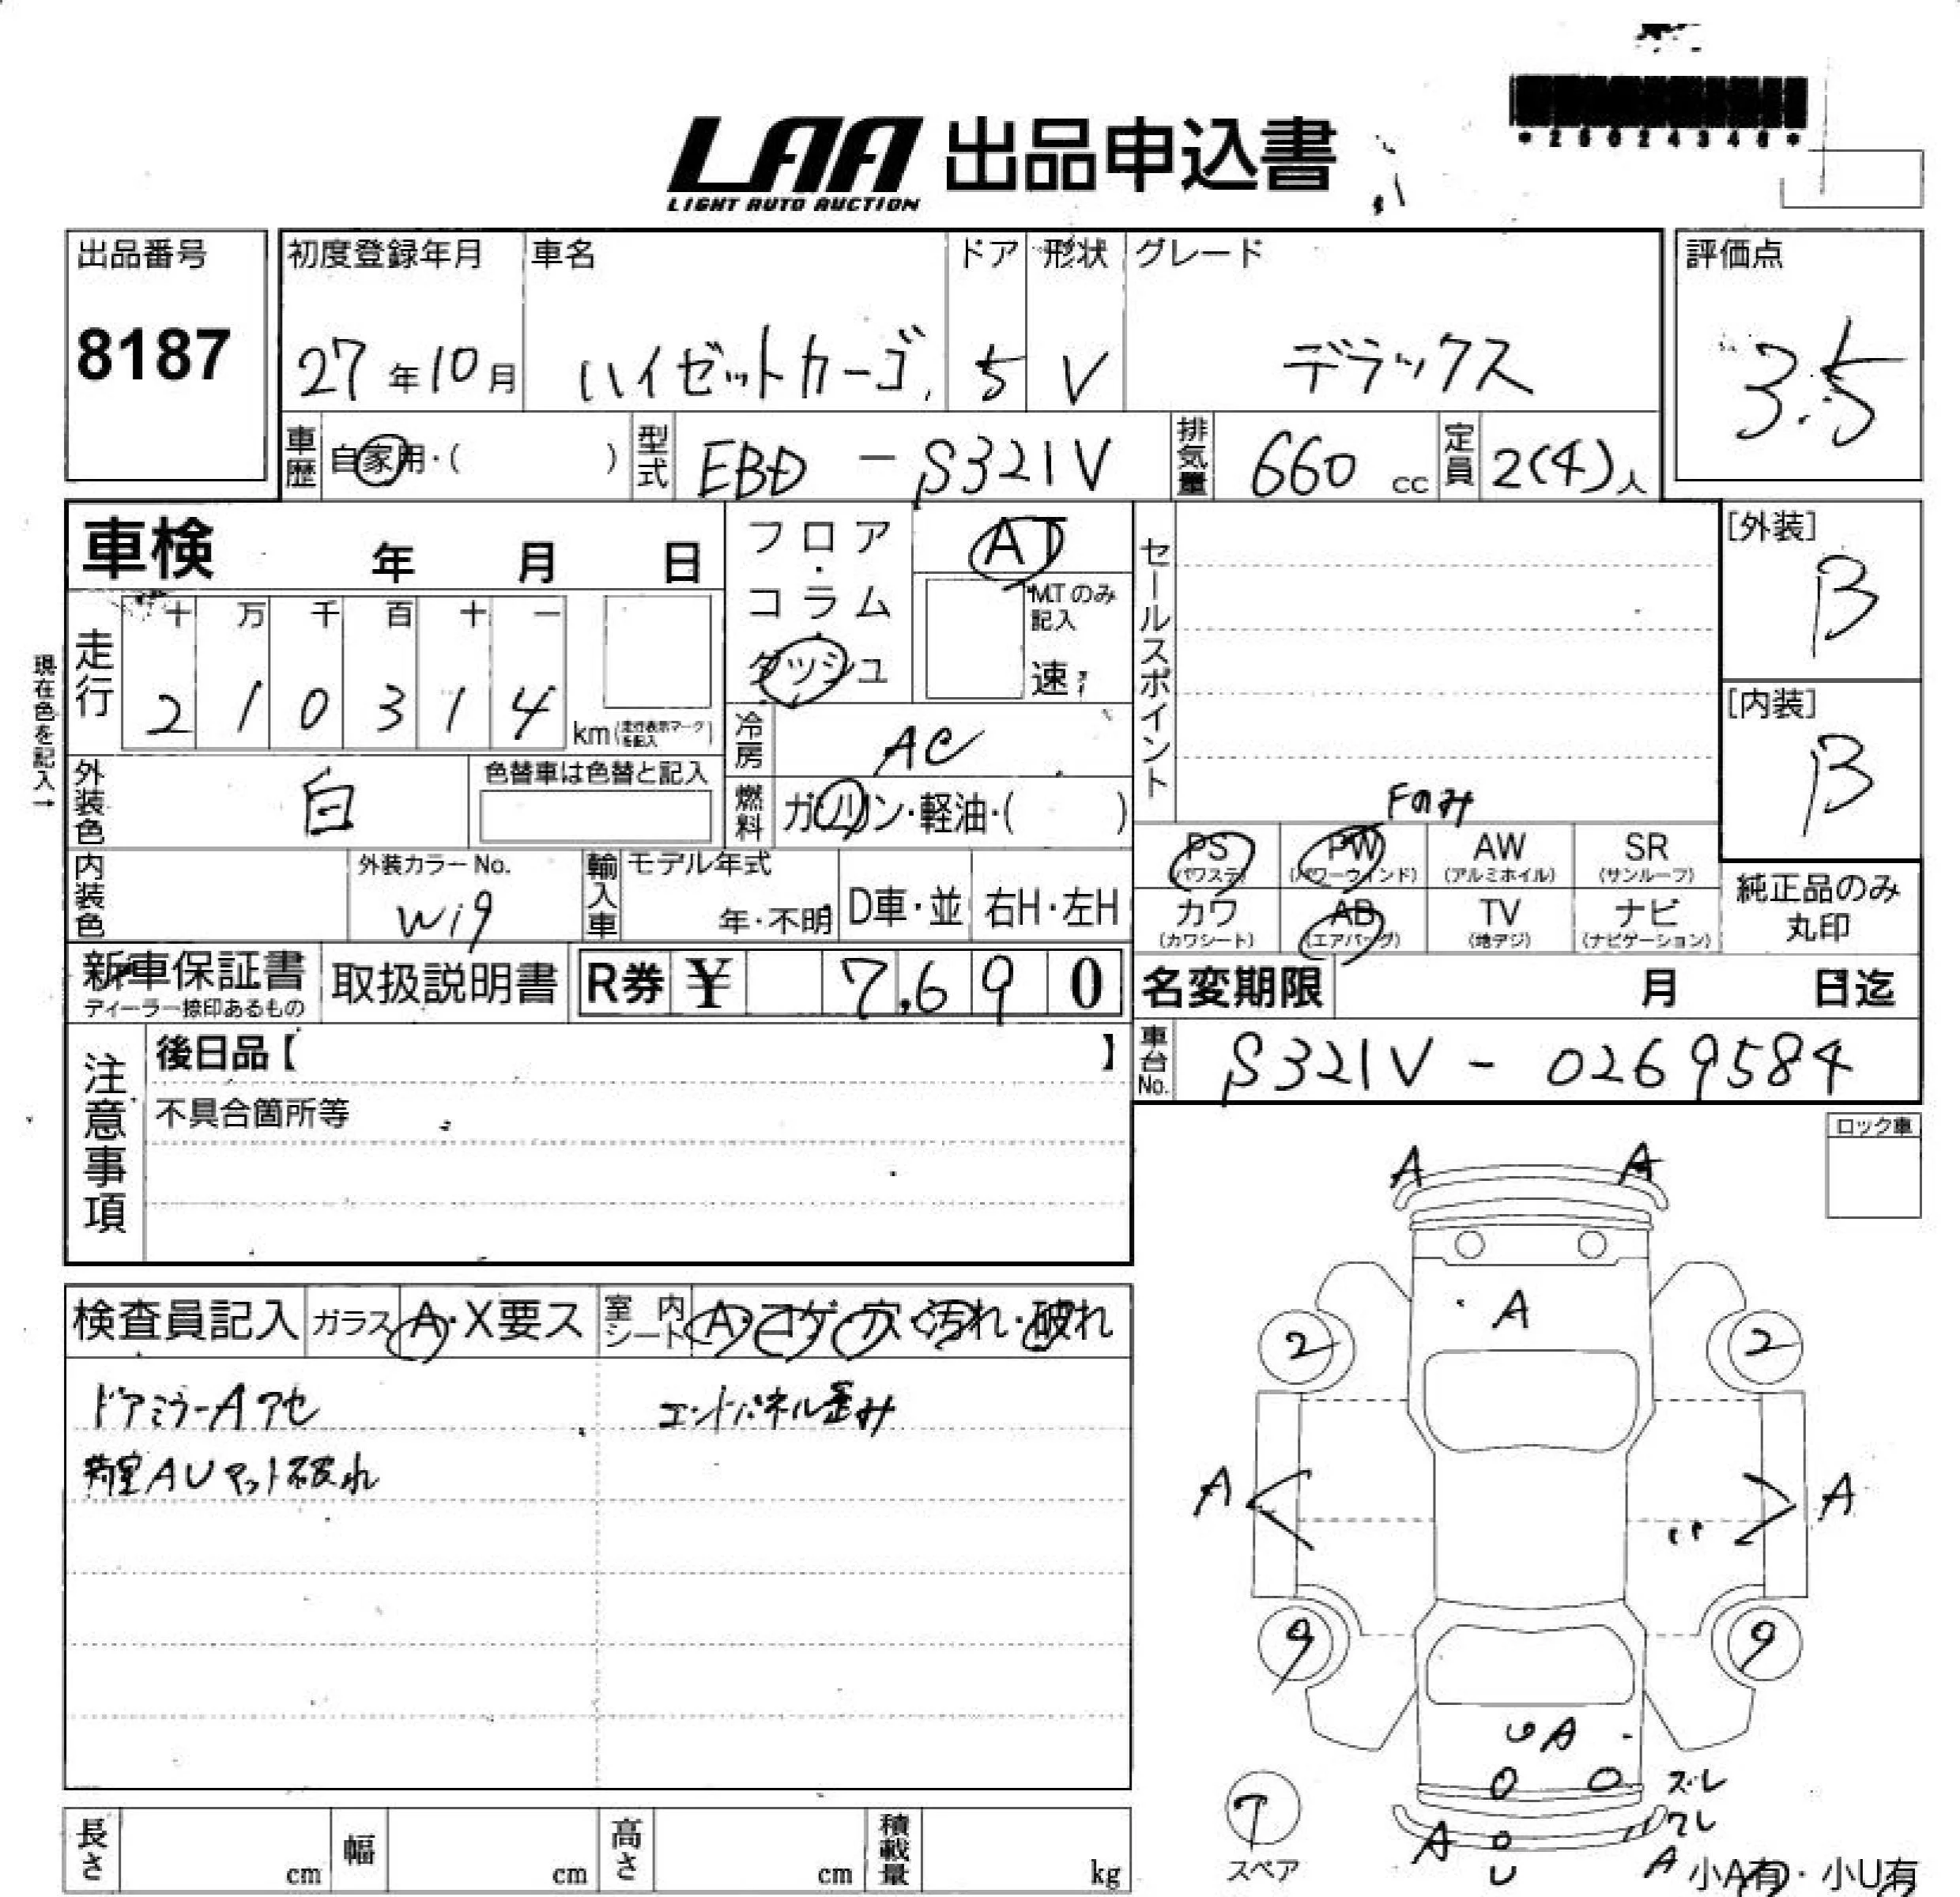 *25024346*
LAA 出品申込書
LIGHT AUTO AUCTION
出品番号
8187
初度登録年月
27年10月
車名
ハイゼットカーゴ
ドア
5
形状
V
グレード
デラックス
評価点
3.5
車歴 自家用・( )
型式 EBD - S321V
排気量 660 cc
定員 2(4)人
車検 年 月 日
フロア・コラム・ダッシュ
AT
M.Tのみ記入
速
セールスポイント
[外装]
B
[内装]
B
現在色を記入→
走行
十 万 千 百 十 一
2 1 0 3 1 4
km(走行表示マークを記入)
冷房 AC
外装色 白
色替車は色替と記入
燃料 ガソリン・軽油・( )
Fのみ
PS (パワステ)
PW (パワーウインド)
AW (アルミホイル)
SR (サンルーフ)
カワ (カワシート)
AB (エアバッグ)
TV (地デジ)
ナビ (ナビゲーション)
純正品のみ丸印
内装色
外装カラーNo.
W19
輸入車
モデル年式
年・不明
D車・並
右H・左H
新車保証書
ディーラー捺印あるもの
取扱説明書
R券 ¥ 7,690
名変期限 月 日迄
車台No. S321V - 0269584
注意事項
後日品【 】
不具合箇所等
ロック車
検査員記入
ガラス A・X要ス
室内シート A・コゲ・穴・汚れ・破れ
ドアミラーAアセ
エンドパネル歪み
荷室AUマット破れ
A A
A
2 2
A A
9 9
UA
ズレ
ワレ
A U A
スペア
小A有・小U有
長さ cm
幅 cm
高さ cm
積載量 kg